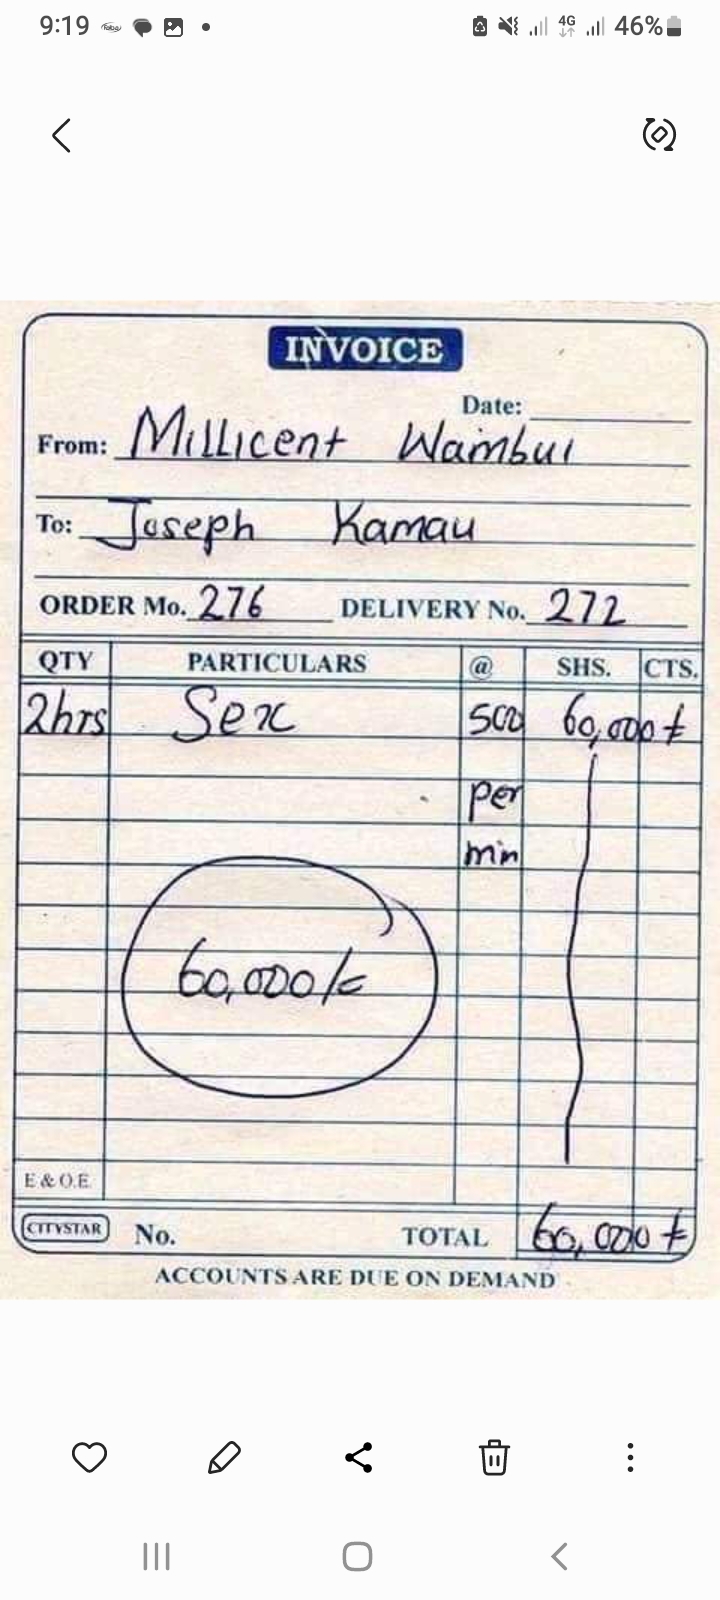 9:19
4G 46%
INVOICE
Date:
From: Millicent Wambui
To: Joseph Kamau
ORDER Mo. 276 DELIVERY No. 272
QTY PARTICULARS @ SHS. CTS.
2hrs Sex 500 60,000/=
per
min
60,000/=
E & O.E
CITYSTAR No. TOTAL 60,000/=
ACCOUNTS ARE DUE ON DEMAND